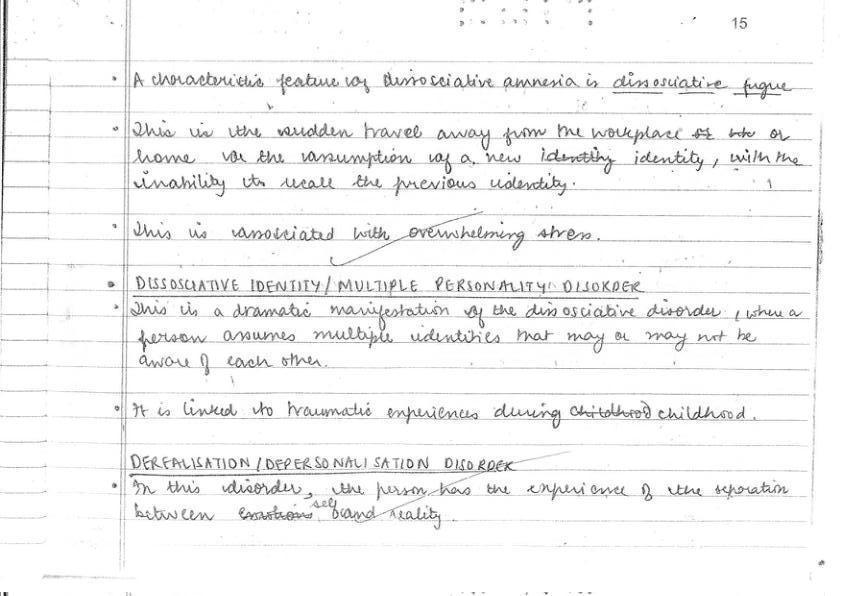 15
• A characteristic feature of dissosciative amnesia is dissosciative fugue
• This is the sudden travel away from the workplace or
home or the assumption of a new identity identity, with the
inability to recall the previous identity.
• This is associated with overwhelming stress.
• DISSOSCIATIVE IDENTITY/MULTIPLE PERSONALITY DISORDER
• This is a dramatic manifestation of the dissosciative disorder, where a
person assumes multiple identities that may or may not be
aware of each other.
• It is linked to traumatic experiences during childhood childhood.
DEREALISATION/DEPERSONALISATION DISORDER
• In this disorder, the person has the experience of the separation
between emotions self and reality.